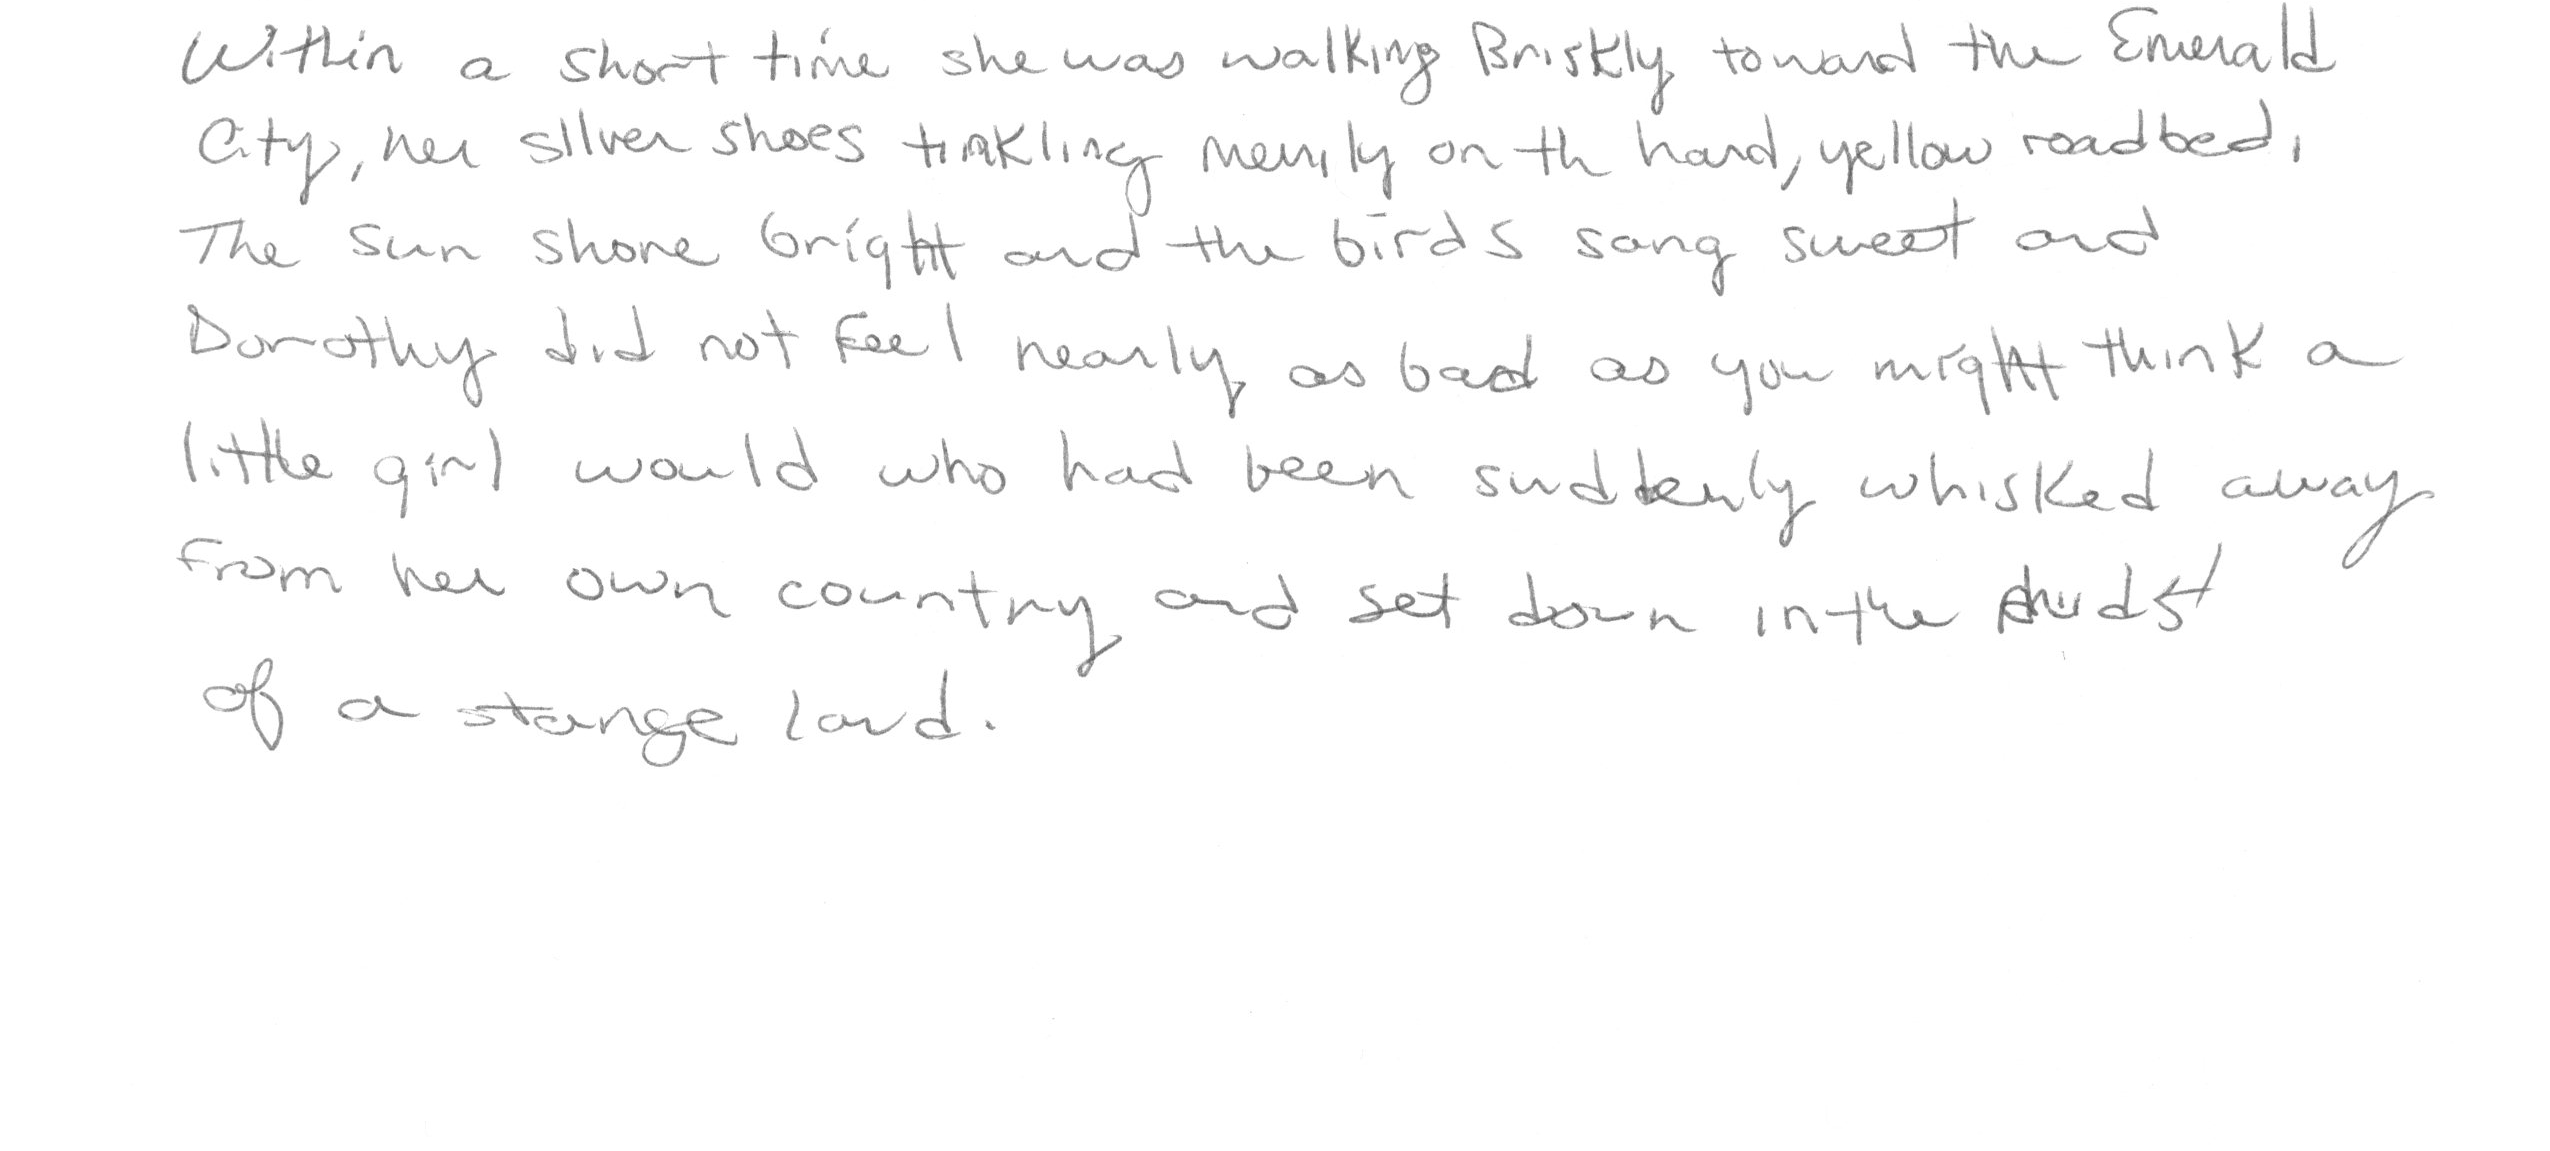 Within a short time she was walking Briskly toward the Emerald
City, her silver shoes tinkling merrily on th hard, yellow roadbed.
The sun shone bright and the birds sang sweet and
Dorothy did not feel nearly as bad as you might think a
little girl would who had been suddenly whisked away
from her own country and set down in the midst
of a stange land.